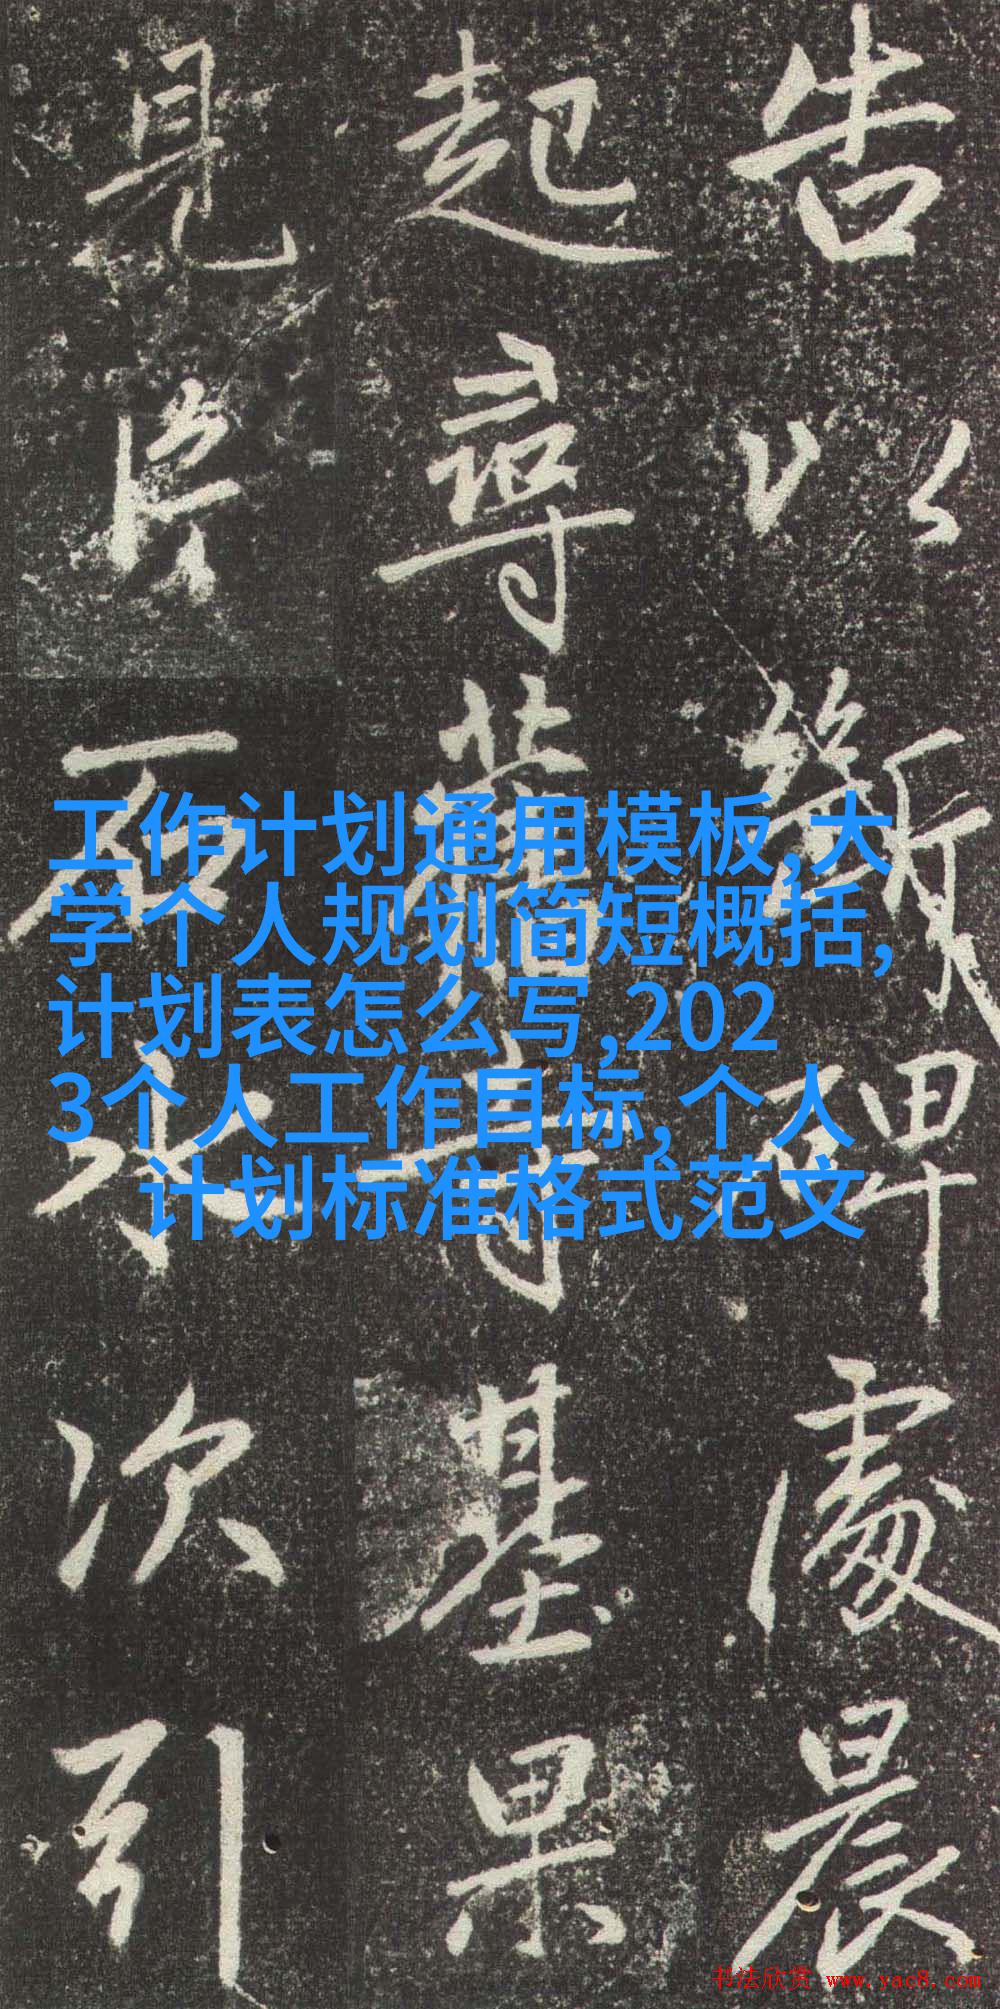 告以碑處晨
起尋基果
見片石次引
工作计划通用模板,大
学个人规划简短概括,
计划表怎么写,202
3个人工作目标,个人
计划标准格式范文
书法欣赏 www.yac8.com